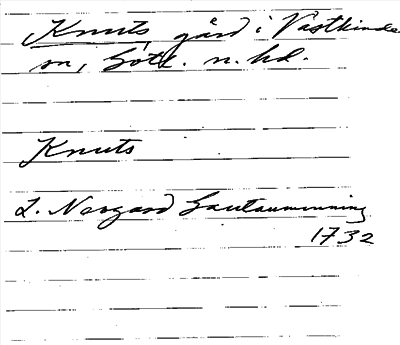 Knuts gård i Västkinde
sn, Gotl. n. hd.
Knuts
L. Norgard Gautauminning
1732